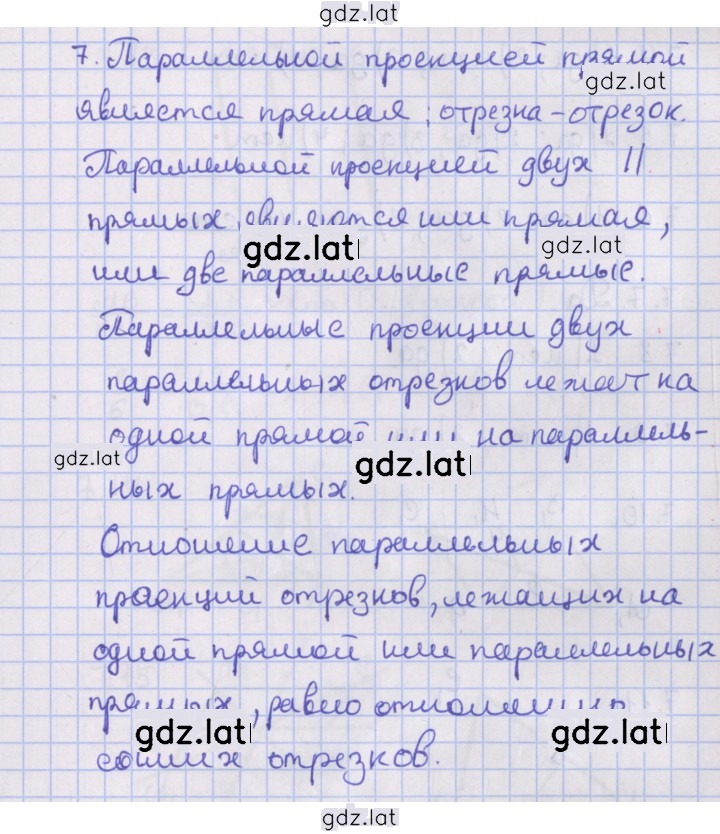 gdz.lat
7. Параллельной проекцией прямой
gdz.lat
является прямая; отрезка - отрезок.
Параллельной проекцией двух ||
прямых являются или прямая,
gdz.lat
gdz.lat
или две параллельные прямые.
Параллельные проекции двух
параллельных отрезков лежат на
одной прямой или на параллель-
gdz.lat
gdz.lat
ных прямых.
Отношение параллельных
проекций отрезков, лежащих на
одной прямой или параллельных
прямых, равно отношению
gdz.lat
gdz.lat
самих отрезков.
gdz.lat